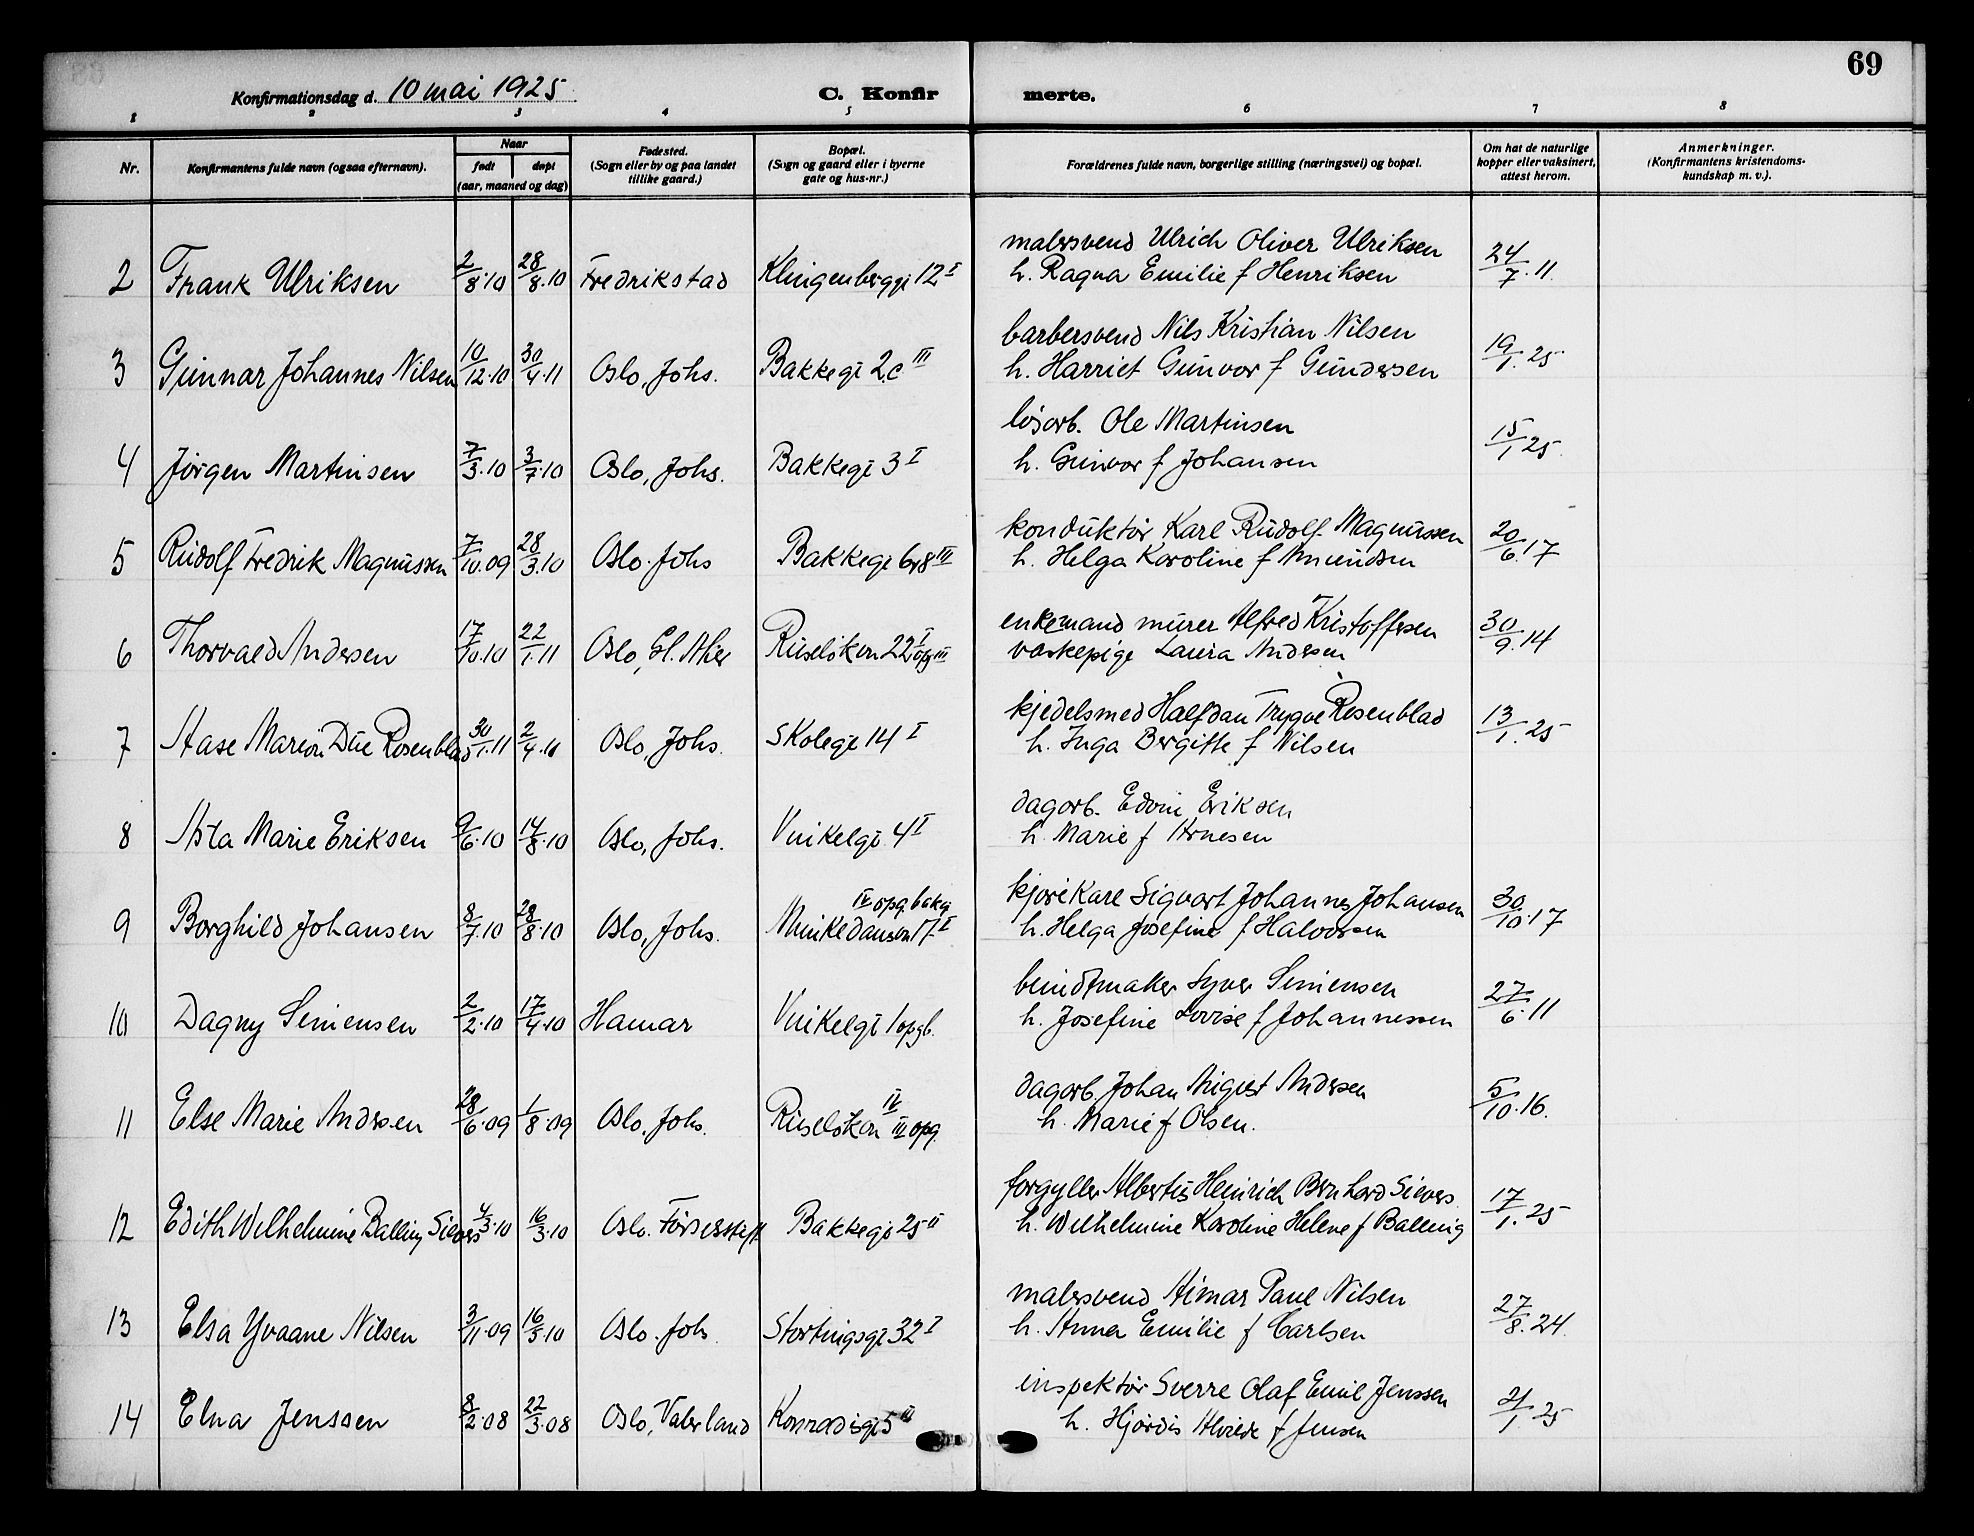 69
Konfirmationsdag d. 10 mai 1925
C. Konfirmerte.
1 2 3 4 5 6 7 8
Nr.
Konfirmantens fulde navn (ogsaa efternavn).
Naar
født døpt
(aar, maaned og dag)
Fødested.
(Sogn eller by og paa landet
tillike gaard.)
Bopæl.
(Sogn og gaard eller i byerne
gate og hus-nr.)
Forældrenes fulde navn, borgerlige stilling (næringsvei) og bopæl.
Om hat de naturlige
kopper eller vaksinert,
attest herom.
Anmerkninger.
(Konfirmantens kristendoms-
kundskap m. v.).
malersvend Ulrich Oliver Ulriksen
2 Frank Ulriksen 2/8.10 28/8.10 Fredrikstad Klingenberggt 12 I h. Ragna Emilie f Henriksen 24/7.11.
barbersvend Nils Kristian Nilsen
3 Gunnar Johannes Nilsen 10/12.10 30/4.11 Oslo, Johs. Bakkegt 2c III h. Harriet Gunvor f Gundersen 19/1.25
løsarb. Ole Martinsen
4 Jörgen Martinsen 7/3.10 3/7.10 Oslo, Johs. Bakkegt 3 I h. Gunvor f Johansen 15/1 25.
konduktör Karl Rudolf Magnussen
5 Rudolf Fredrik Magnussen 7/10.09 28/3.10 Oslo. Johs Bakkegt 6 8 III h. Helga Karoline f Amundsen 20/6.17
enkemand murer Alfred Kristoffersen
6 Thorvald Andersen 17/10.10 22/1.11 Oslo, Gl. Aker Ruselökvn 22 I opg III vaskepige Laura Andersen 30/9.14
kjedelsmed Halfdan Trygve Rosenblad
7 Aase Marion Due Rosenblad 30/1.11 2/4.11 Oslo, Johs. Skolegt 14 I h. Inga Bergitte f Nilsen 13/1.25
dagarb. Edvin Eriksen
8 Asta Marie Eriksen 9/6.10 14/8.10 Oslo, Johs. Vinkelgt 4 I h. Marie f Arnesen
IV opg. bakg kjørekarl Sigvart Johannes Johansen
9 Borghild Johansen 8/7.10 28/8.10 Oslo, Johs. Munkedamsvn 17 I h. Helga Josefine f Halvorsen 30/10.17
bundtmaker Syver Simensen
10 Dagny Simensen 2/2.10 17/4.10 Hamar Vinkelgt 1 opg b. h. Josefine Lovise f Johannessen 27/6.11
dagarb. Johan August Andersen
11 Else Marie Andersen 28/6.09 1/8.09 Oslo. Johs. Ruselökvn IV III opg. h. Marie f Olsen. 5/10.16.
forgyller Albertus Heinrich Bernhard Sievers
12 Edith Wilhelmine Balling Sievers 4/3.10 16/3.10 Oslo. Födselsstift Bakkegt 25 II h. Wilhelmine Karoline Helene f Balling 17/1.25
malersvend Aimar Paul Nilsen
13 Elsa Yvaane Nilsen 3/11.09 16/3.10 Oslo. Johs Stortingsgt 32 I h. Anna Emilie f Carlsen 27/8.24.
inspektör Sverre Olaf Emil Jenssen
14 Elna Jenssen 8/2.08 22/3.08 Oslo, Vaterland Konradisgt 5 III h. Hjördis Alvilde f Jensen 21/1 25